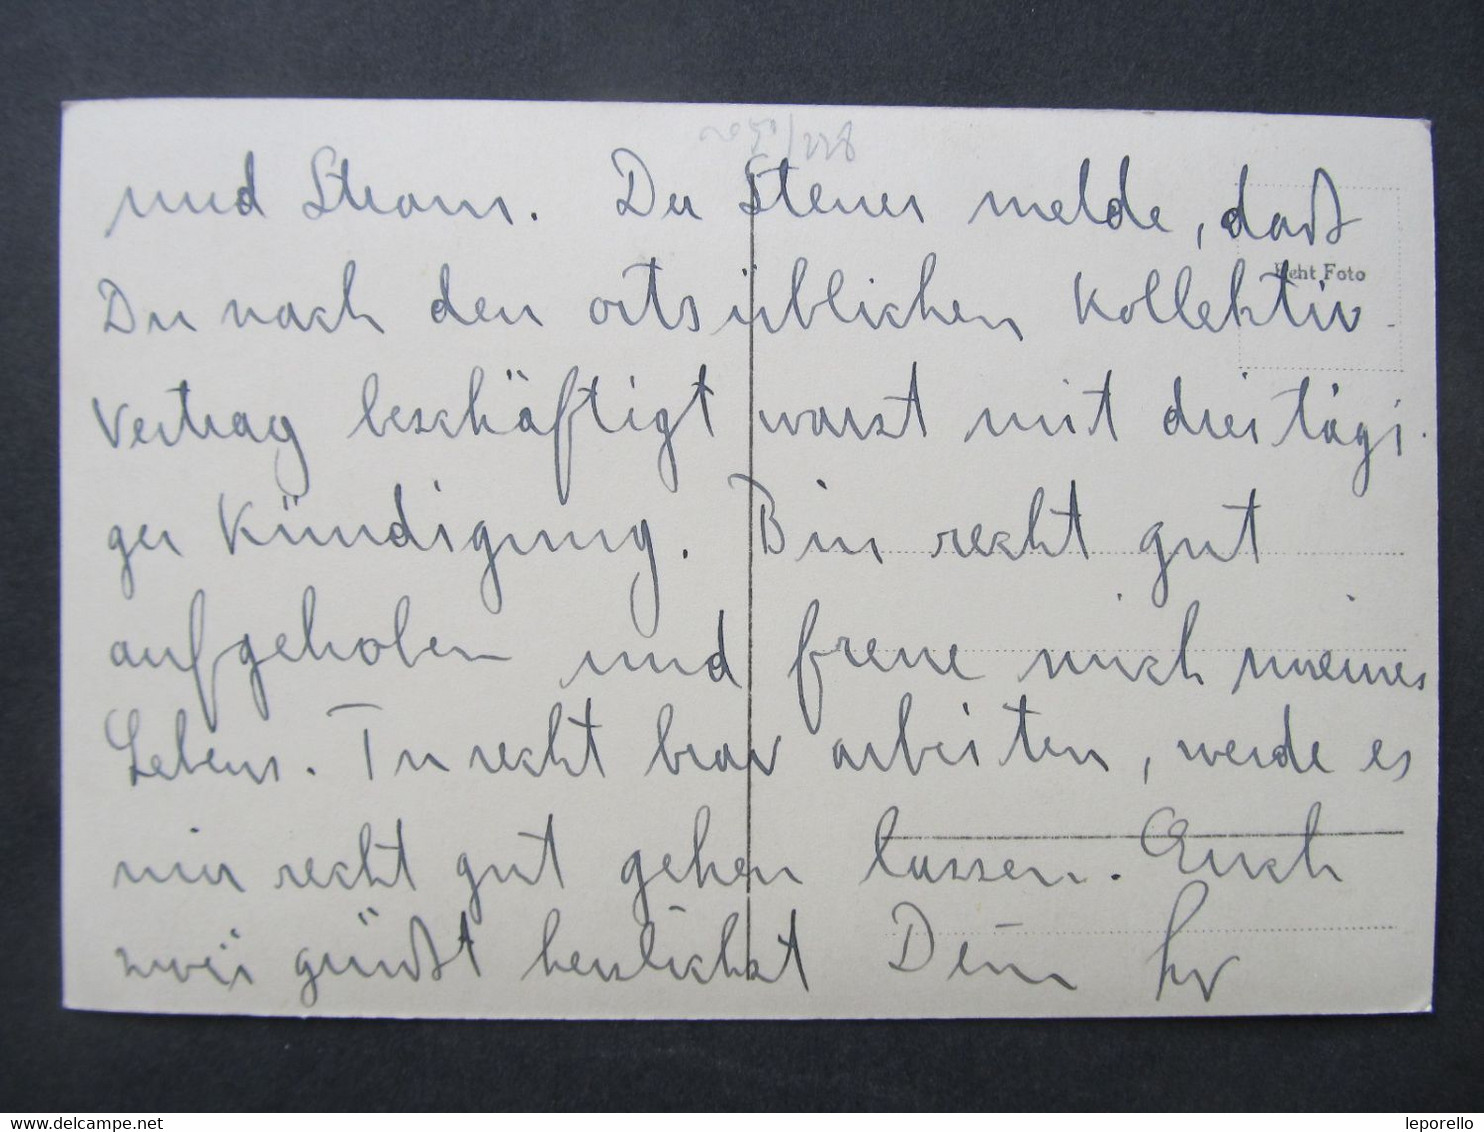 und Strom. Der Steuer melde, daß
Echt Foto
Du nach den ortsüblichen Kollektiv
Vertrag beschäftigt warst mit dreitägi-
ger Kündigung. Bin recht gut
aufgehoben und freue mich meines
Lebens. Tu recht brav arbeiten, werde es
mir recht gut gehen lassen. Euch
zwei grüßt herzlichst Dein
leporello